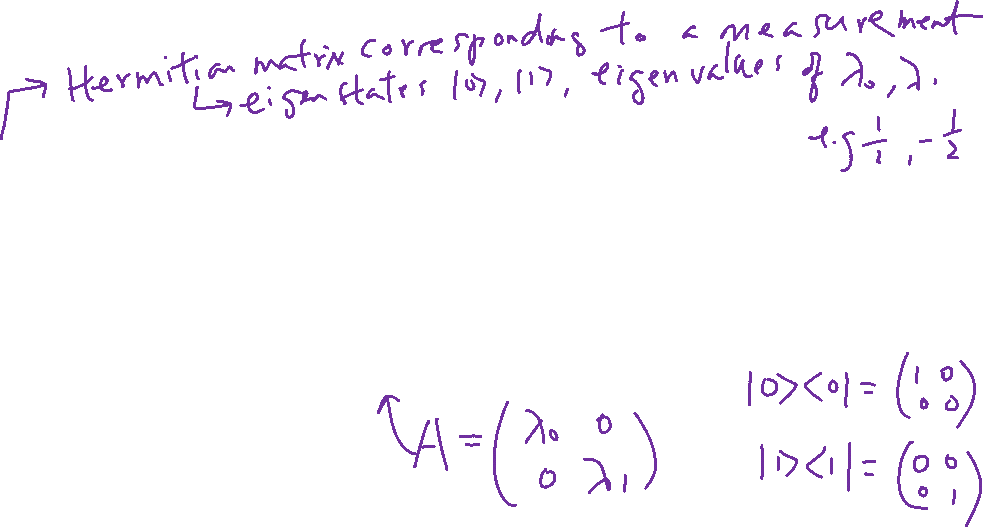 → Hermitian matrix corresponding to a measurement
↳ eigenstates |0⟩, |1⟩, eigenvalues of λ₀, λ₁
e.g 1/2, -1/2
|0><0| = (1 0; 0 0)
A = (λ₀ 0; 0 λ₁)
|1><1| = (0 0; 0 1)